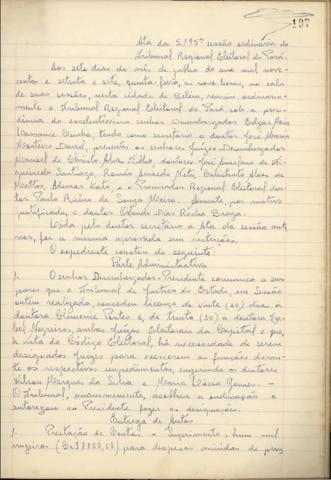 197
Ata da 5.195ª sessão ordinária do
Tribunal Regional Eleitoral do Pará.
Aos sete dias do mês de julho do ano mil nove-
centos e setenta e sete, quinta-feira, às nove horas, na sala
de suas sessões, nesta cidade de Belém, reuniu ordinaria-
mente o Tribunal Regional Eleitoral do Pará, sob a presi-
dência do excelentíssimo senhor Desembargador Edgar Maia
Lassance Cunha, tendo como secretário o doutor José Maria
Monteiro David, presentes os senhores Juízes = Desembargador
Manoel de Christo Alves Filho, doutores José Anselmo de Fi-
gueiredo Santiago, Romão Amoedo Neto, Calistrato Alves de
Mattos, Ademar Kato, e o Procurador Regional Eleitoral dou-
tor Paulo Rubio de Souza Meira. Ausente, por motivo
justificado, o doutor Orlando Dias Rocha Braga.
Lida pelo doutor secretário a Ata da sessão ante-
rior, foi a mesma aprovada sem restrição.
O expediente constou do seguinte:
Parte Administrativa
1. O senhor Desembargador Presidente comunica a seus
pares que o Tribunal de Justiça do Estado, em Sessão
ontem realizada, concedeu licença de vinte (20) dias à
doutora Climenie Pontes e, de trinta (30) à doutora Iza-
bel Negreiros, ambas Juízas Eleitorais da Capital e que,
à vista do Código Eleitoral, há necessidade de serem
designados Juízes para exercerem as funções duran-
te os respectivos impedimentos, sugerindo os doutores
Wilson Marques da Silva e Maria Lúcia Gomes. -
O Tribunal, unanimemente, acolheu a indicação e
autorizou ao Presidente fazer as designações.
Entrega de Autos
1. Prestação de Contas. - Suprimento: hum mil
cruzeiros (Cr$1.000,00) para despesas miúdas de pron